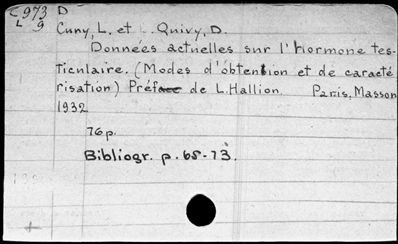 C973 D
L9
Cuny, L. et L. Quivy, D.
Données actuelles sur l'hormone tes-
ticulaire. (Modes d'obtention et de caracté
risation) Préface de L. Hallion. Paris, Masson
1932
76 p.
Bibliogr. p. 65-73.